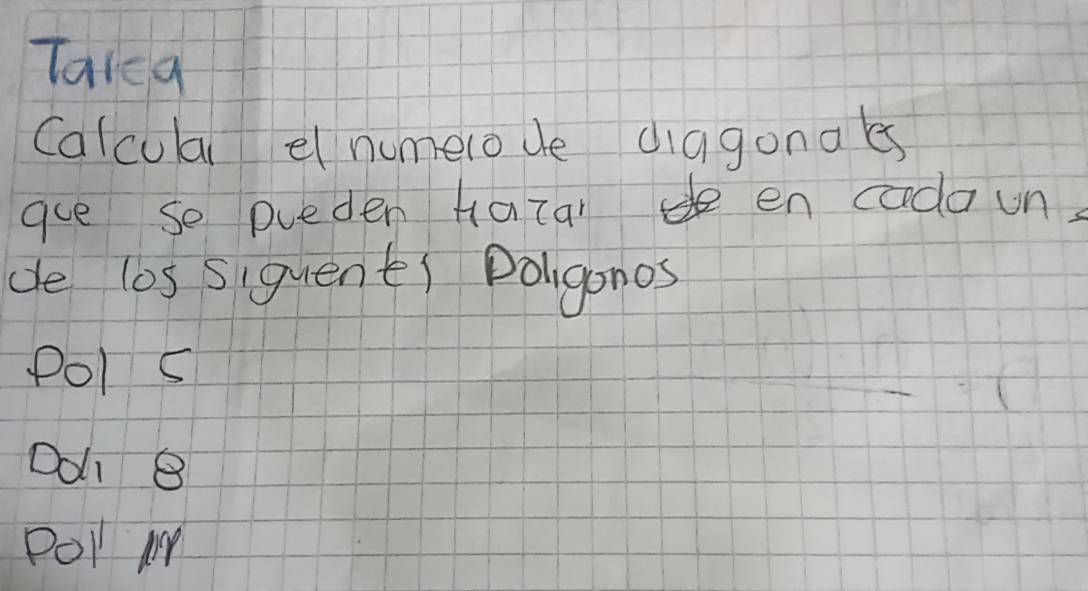 Tarea
Calcular el numero de diagonales
que se pueden trazar en cada un
de los siguentes Poligonos
Pol 5
Poli 8
Poli